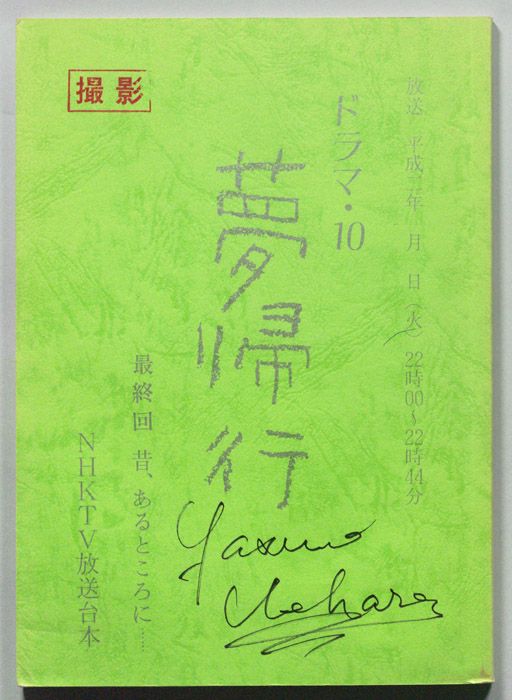 放送 平成二年 月 日(火) 22時00〜22時44分
ドラマ・10
撮影
夢帰行
最終回 昔、あるところに……
NHKTV放送台本
Yasuno
Uehara